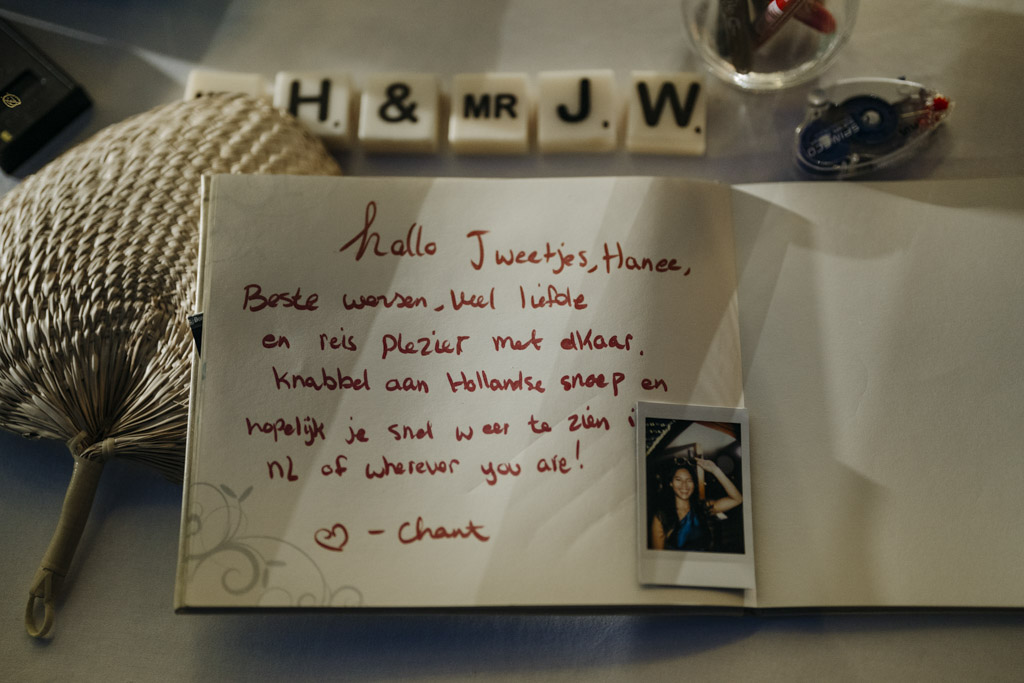 H. & MR J. W.
hallo Jweetjes, Hanee,
Beste wensen, veel liefde
en reis plezier met elkaar.
Knabbel aan Hollandse snoep en
hopelijk je snel weer te zien
NL of wherever you are!
♡ - Chant